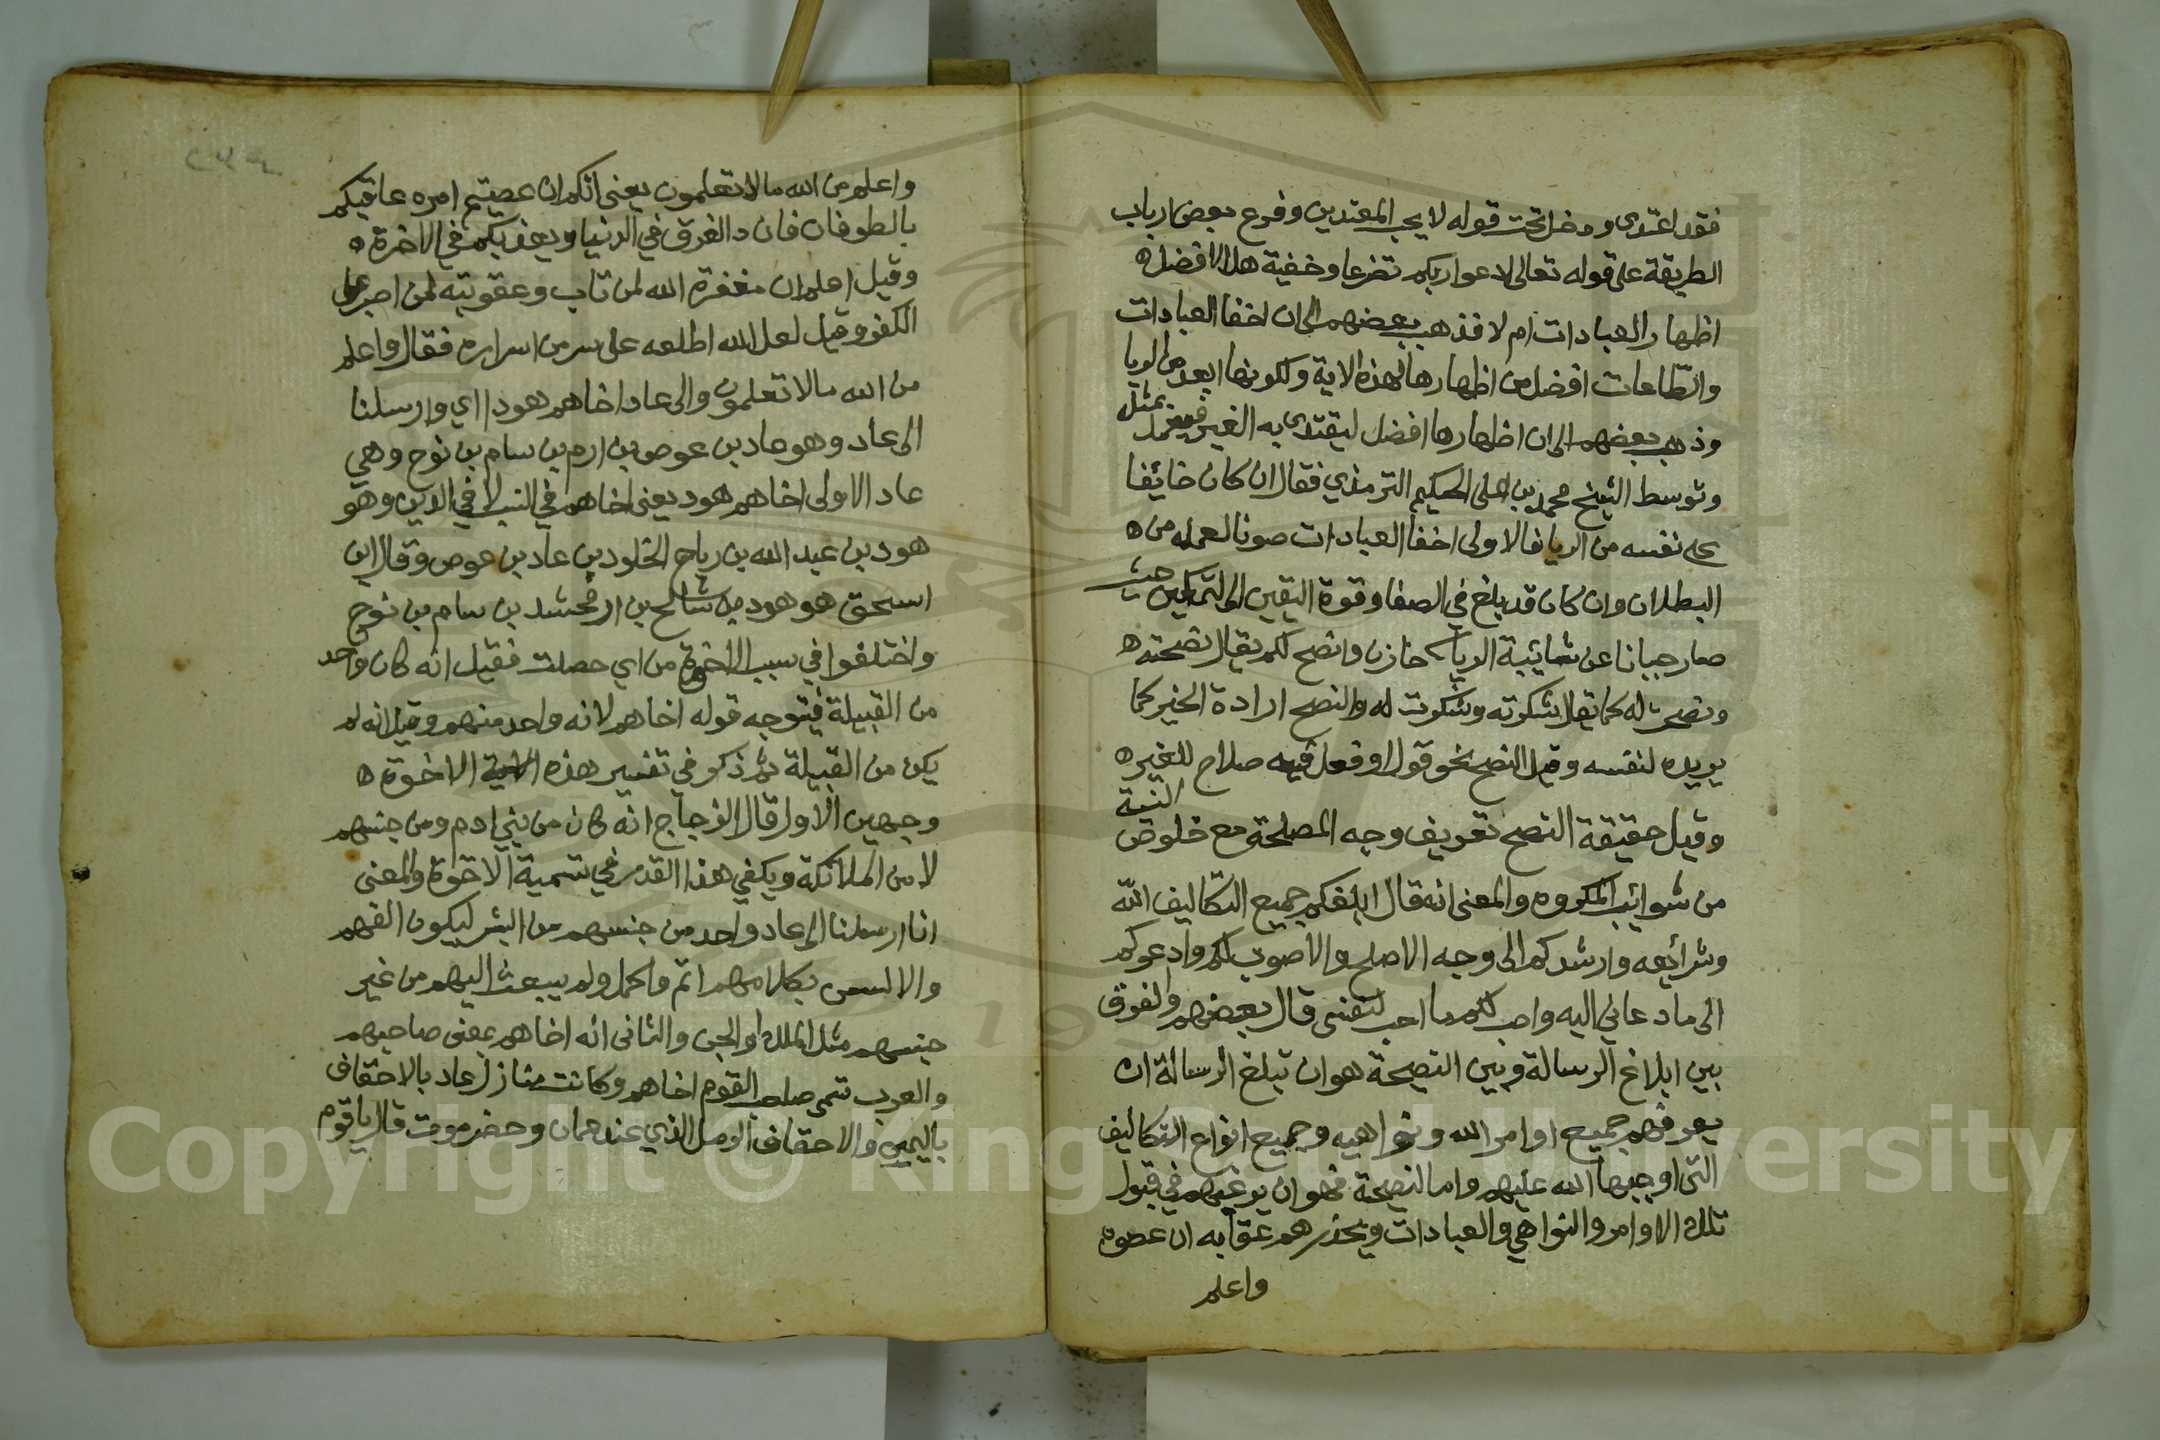 فقد اعتدى ودخل تحت قوله لا يحب المعتدين وفرع بعض ارباب
الطريقة على قوله تعالى ادعوا ربكم تضرعا وخفية هل الافضل
اظهار العبادات ام لا فذهب بعضهم الى ان اخفا العبادات
والطاعات افضل من اظهارها لهذه الاية ولكونها ابعد من الريا
وذهب بعضهم الى ان اظهارها افضل ليقتدى به الغير فيعمل بمثل
وتوسط الشيخ محمد بن على الحكيم الترمذي فقال ان كان خائفا
على نفسه من الريا فالاولى اخفا العبادات صونا لعمله من
البطلان وان كان قد بلغ في الصفا وقوة اليقين الى التمكين حيث
صار مباينا عن شائبة الريا خازن وانصح لكم يقال نصحته
ونصحت له كما يقال شكرته وشكرت له والنصح ارادة الخير كما
يريده لنفسه وقيل النصح نحو قول او فعل فيه صلاح للغير
وقيل حقيقة النصح تعريف وجه المصلحة مع خلوص النية
من شوائب المكروه والمعنى انه قال ابلغكم جميع التكاليف الله
وشرائعه وارشدكم الى وجه الاصلح والاصوب لكم وادعوكم
الى ما دعاني اليه واحب لكم ما احب لنفسى قال بعضهم والفرق
بين ابلاغ الرسالة وبين النصيحة هو ان تبلغ الرسالة ان
يعرفهم جميع اوامر الله ونواهيه وجميع انواع التكاليف
التى اوجبها الله عليهم واما النصيحة فهو ان يرغبهم في قبول
تلك الاوامر والنواهي والعبادات ويحذرهم عقابه ان عصوه
واعلم
واعلم من الله ما لا تعلمون يعنى انكم ان عصيتم امره عاقبكم
بالطوفان والغرق في الدنيا ويعذبكم في الاخرة
وقيل اعلم ان مغفرة الله لمن تاب وعقوبته لمن اصر على
الكفر وقيل لعل الله اطلعه على سر من اسراره فقال واعلم
من الله ما لا تعلمون والى عاد اخاهم هودا اي وارسلنا
الى عاد وهو عاد بن عوص بن ارم بن سام بن نوح وهي
عاد الاولى اخاهم هود يعنى اخاهم في النسب لا في الدين وهو
هود بن عبد الله بن رباح الخلود بن عاد بن عوص وقال ابن
اسحق هو هود بن شالخ بن ارفخشد بن سام بن نوح
واختلفوا في سبب الاخوة من اي حصلت فقيل انه كان واحد
من القبيلة فيتوجه قوله اخاهم لانه واحد منهم وقيل انه لم
يكن من القبيلة ثم ذكر في تفسير هذه الاخوة
وجهين الاول قال الزجاج انه كان من بني ادم ومن جنسهم
لا من الملائكة ويكفي هذا القدر في تسمية الاخوة والمعنى
انا ارسلنا الى عاد واحد من جنسهم من البشر ليكون الفهم
والانس بكلامهم اتم واكمل ولم يبعث اليهم من غير
جنسهم مثل الملك او الجن والثانى انه اخاهم بمعنى صاحبهم
والعرب تسمى صاحب القوم اخاهم وكانت منازل عاد بالاحقاف
باليمن والاحقاف الرمل الذي عند عمان وحضرموت قال يا قوم
Copyright © King Saud University